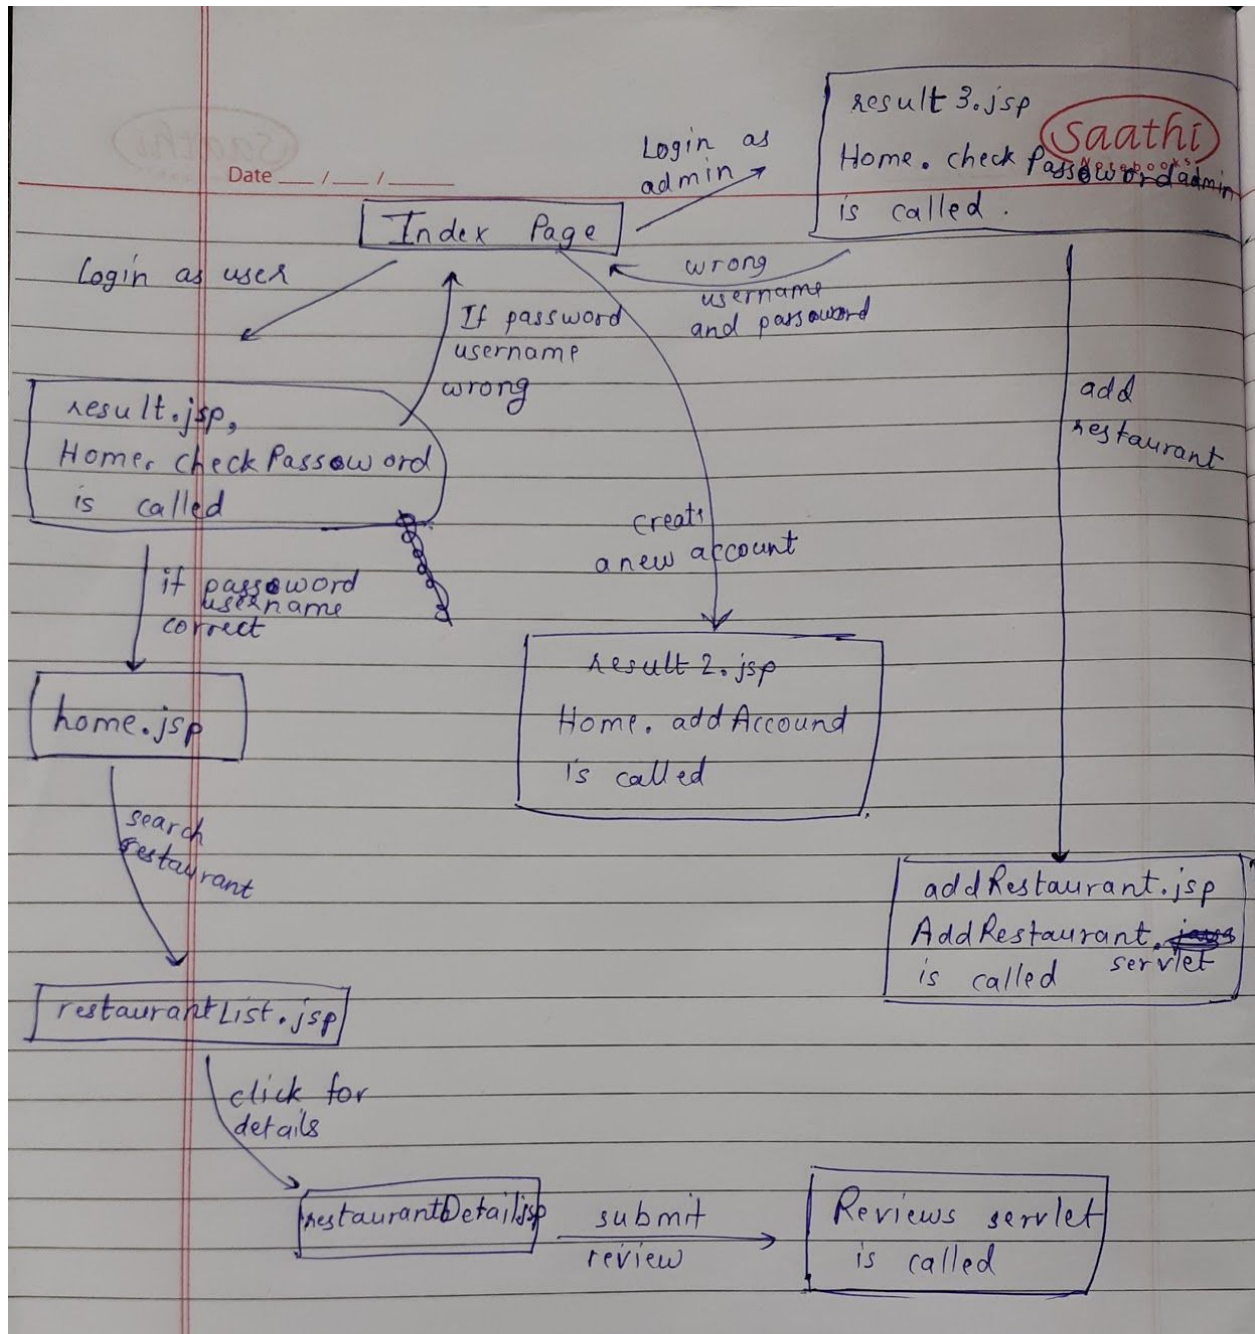 result 3.jsp
saathi
Notebooks
Home. check Passowordadmin
is called.
Login as
admin
Date __ / __ / ____
Index Page
Login as user
wrong
username
and passoword
If password
username
wrong
result.jsp,
Home. check Passoword
is called
add
restaurant
creats
a new account
if passoword
username
correct
result 2.jsp
Home. addAccound
is called
home.jsp
search
restaurant
addRestaurant.jsp
AddRestaurant.
servlet
is called
restaurantList.jsp
click for
details
restaurantDetail.jsp
submit
review
Reviews servlet
is called